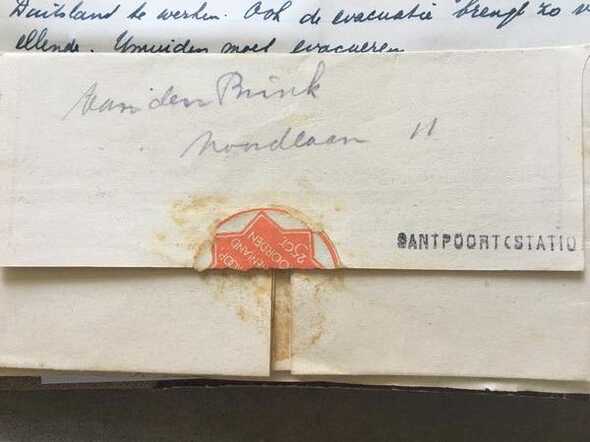 Duitsland te werken. Ook de evacuatie brengt zo v
ellende. IJmuiden moet evacueren
van den Brink
Noordlaan 11
SANTPOORT (STATIO
2½ CT